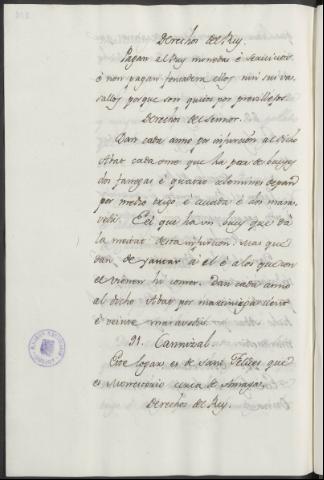 Derechos del Rey.
Pagan al Rey moneda è servicios
è non pagan fonsadera ellos nin sus va-
sallos porque son quitos por previllejos.
Derechos del Sennor.
Dan cada anno por infurcion al dicho
Abat cada ome que ha par de bueyes
dos fanegas è quatro celemines de pan
por medio trigo è cevada è dos mara-
vedis. E el que ha un buey que dà
la meitat desta infurcion. Mas que
dan de yantar à èl è à los que con
el vienen hi comer. Dan cada anno
al dicho Abat por martiniega ciento
è veinte maravedis.
91. Cannizal
Este logar es de Sant Felices que
es Monesterio cerca de Amaya.
Derechos del Rey.